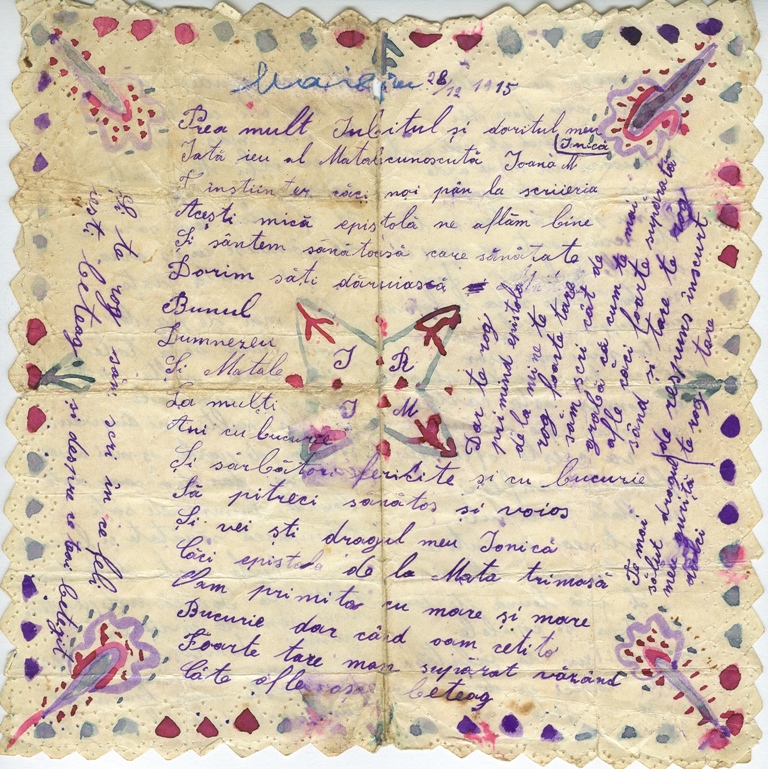 28/12 1915
Prea mult Iubitul și doritul meu
Ionică
Iată ieu al Matale cunoscută Ioană M
căci noi păn la scrieria
Acești mică epistolă ne aflăm bine
Și sântem sănătoasă care sănătate
Dorim săti dăruiască
Bunul
Dumnezeu
Și Matale
La mulți
Ani cu bucurie
Și sărbători fericite și cu bucurie
Să pitreci sanătos și voios
Și vei ști dragul meu Ionică
Căci epistola de la Mata trimasă
Oam primito cu mare și mare
Bucurie dar când oam cetito
Foarte tare mam supărat văzând
Câte afle beteag
I R
I M
Dar te rog
primind epistola
de la mine te
rog foarte tare
sam scri cât de
grabă că cum te mai
afle căci foarte supărată
sând și tare te rog
de respuns înscurt
te rog tare
Te mai
sălut dragul
meu guriță
dulci
Și te rog sâm scri în ce feli
ești beteag și despre ce teai betejit